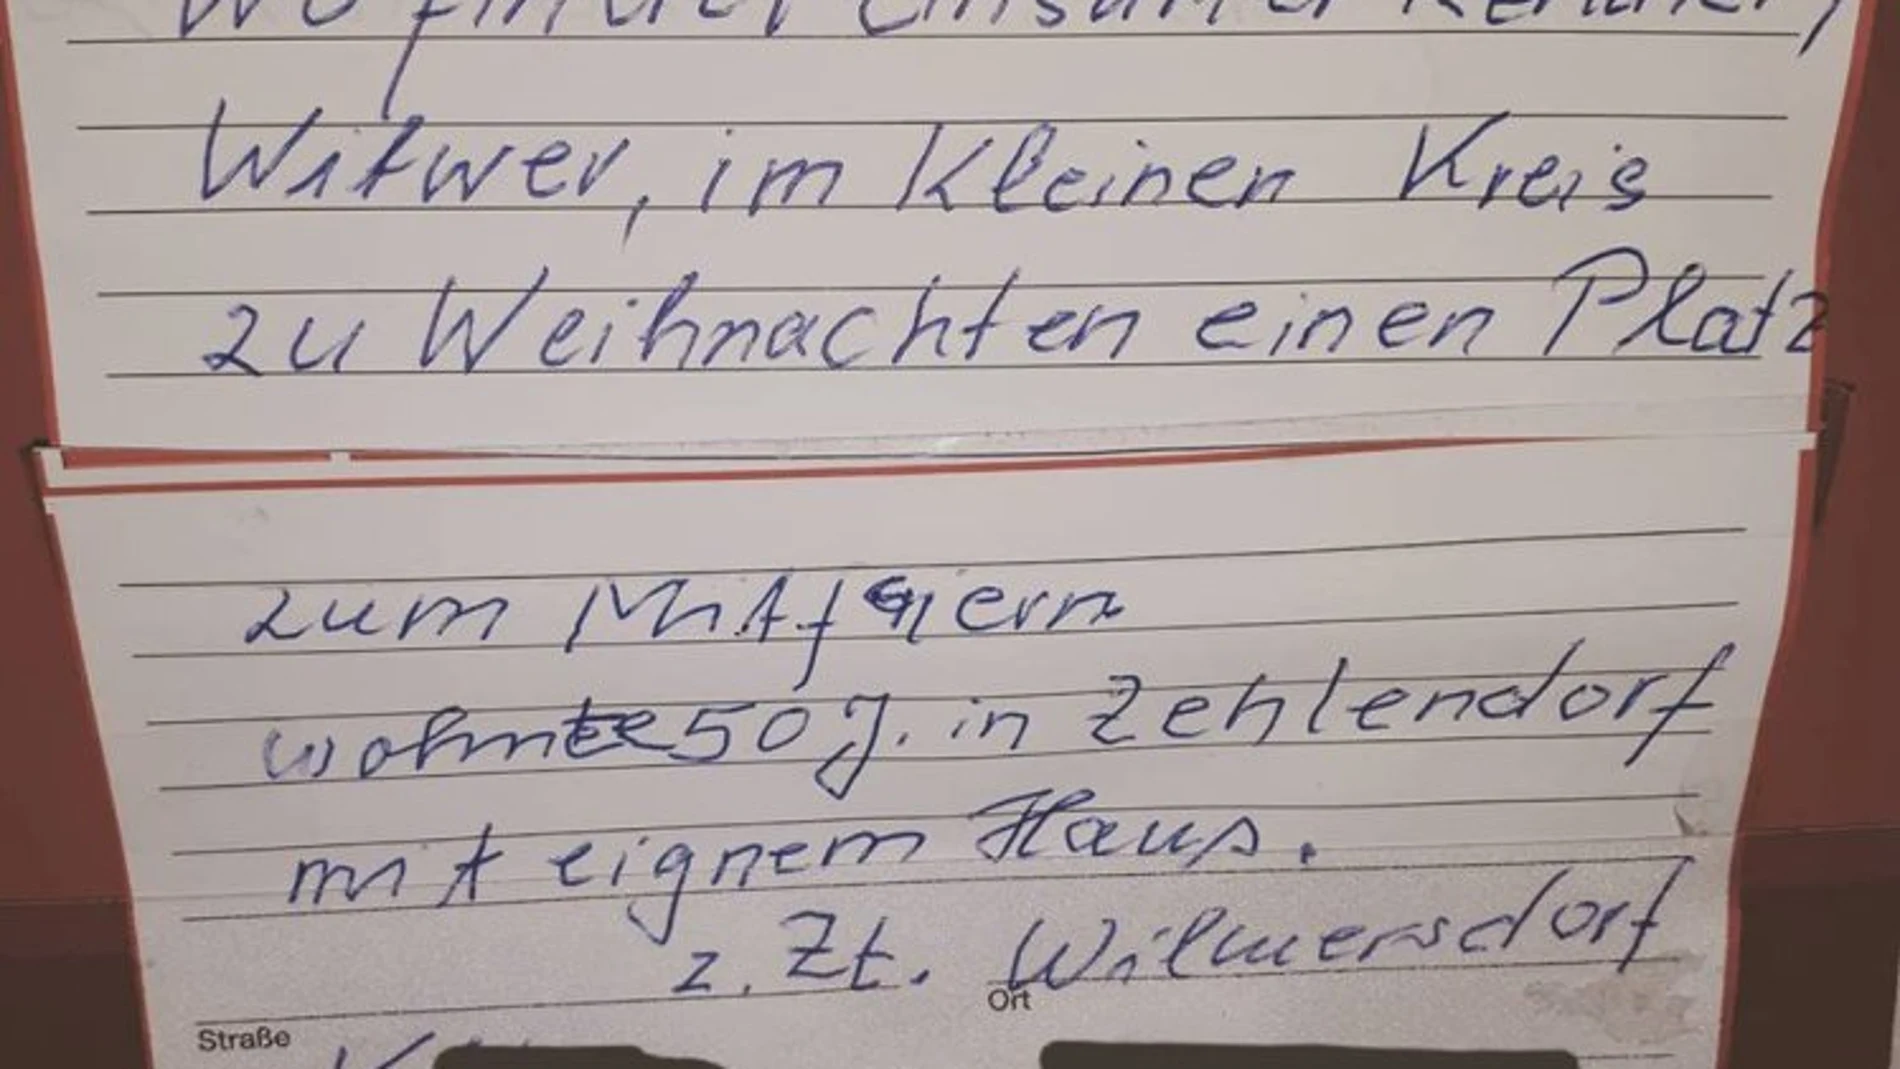 Wo findet einsamer Rentner,
Witwer, im kleinen Kreis
zu Weihnachten einen Platz
zum Mitfeiern
wohnte 50 J. in Zehlendorf
mit eignem Haus.
z. Zt. Wilmersdorf
Ort
Straße